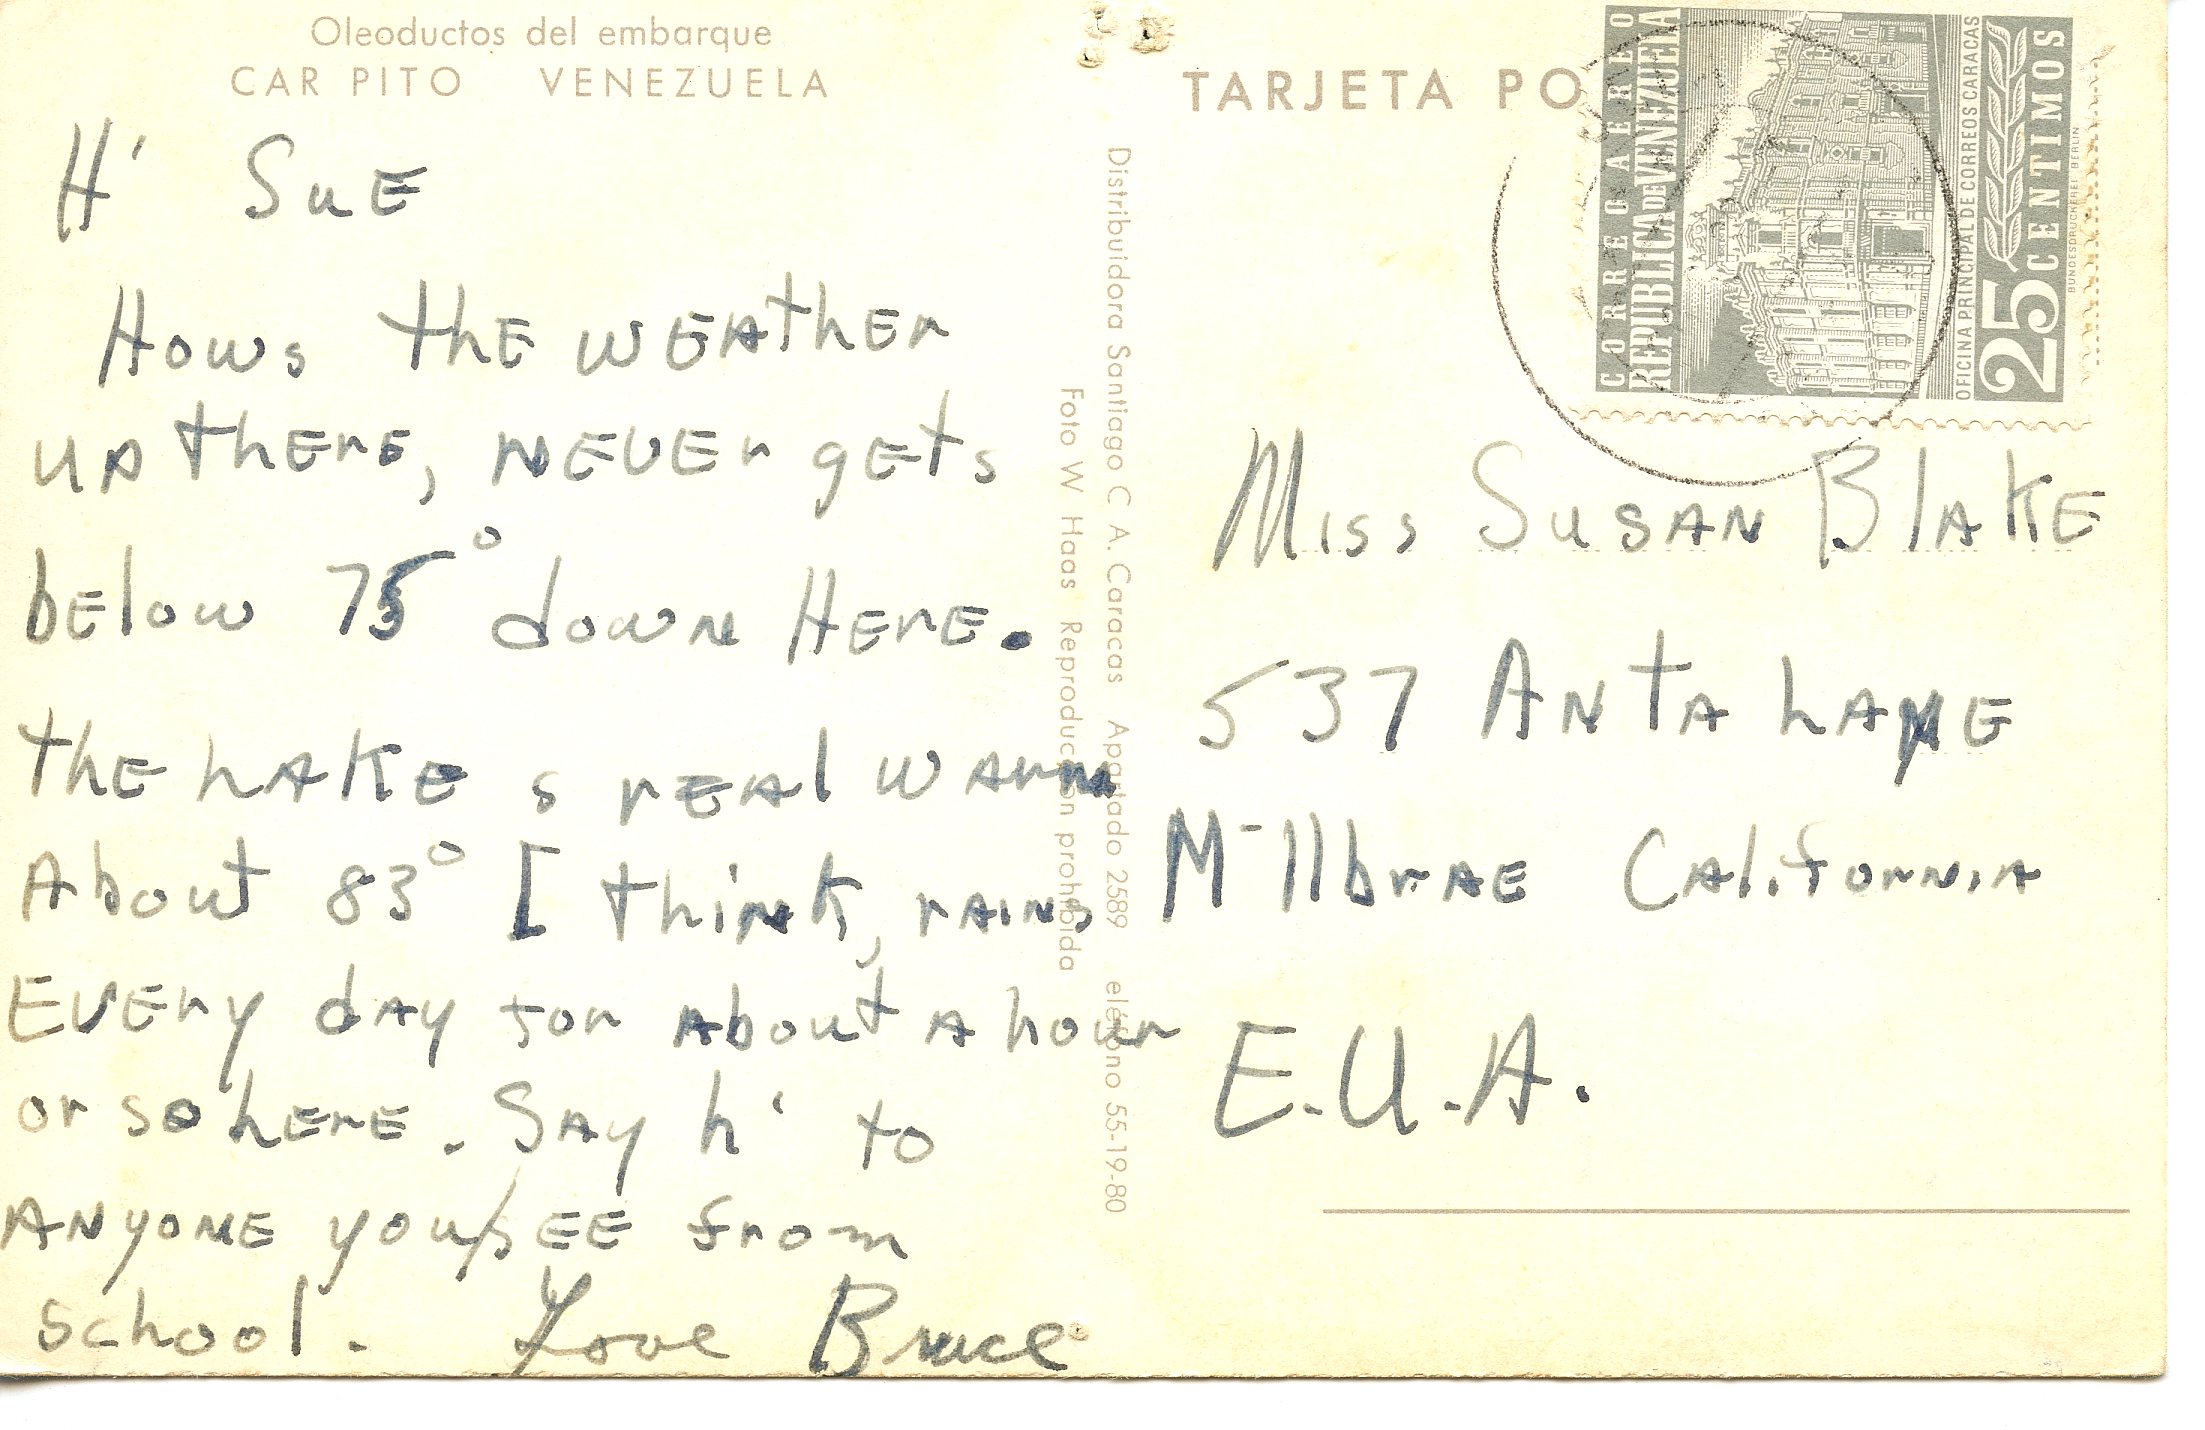 Oleoductos del embarque
CAR PITO VENEZUELA
Hi Sue
Hows the weather
up there, never gets
below 75° down Here.
the Lake s real warm
About 83° I think, rains
Every day for About a hour
or so here. Say hi to
Anyone you/see from
school. Love Bruce
Distribuidora Santiago C A. Caracas Apartado 2589 eléfono 55-19-80
Foto W Haas Reproducción prohibida
TARJETA PO
CORREO AEREO
REPUBLICA DE VENEZUELA
OFICINA PRINCIPAL DE CORREOS CARACAS
25 CENTIMOS
BUNDESDRUCKEREI BERLIN
Miss Susan Blake
537 Anta Lane
Millbrae California
E.U.A.